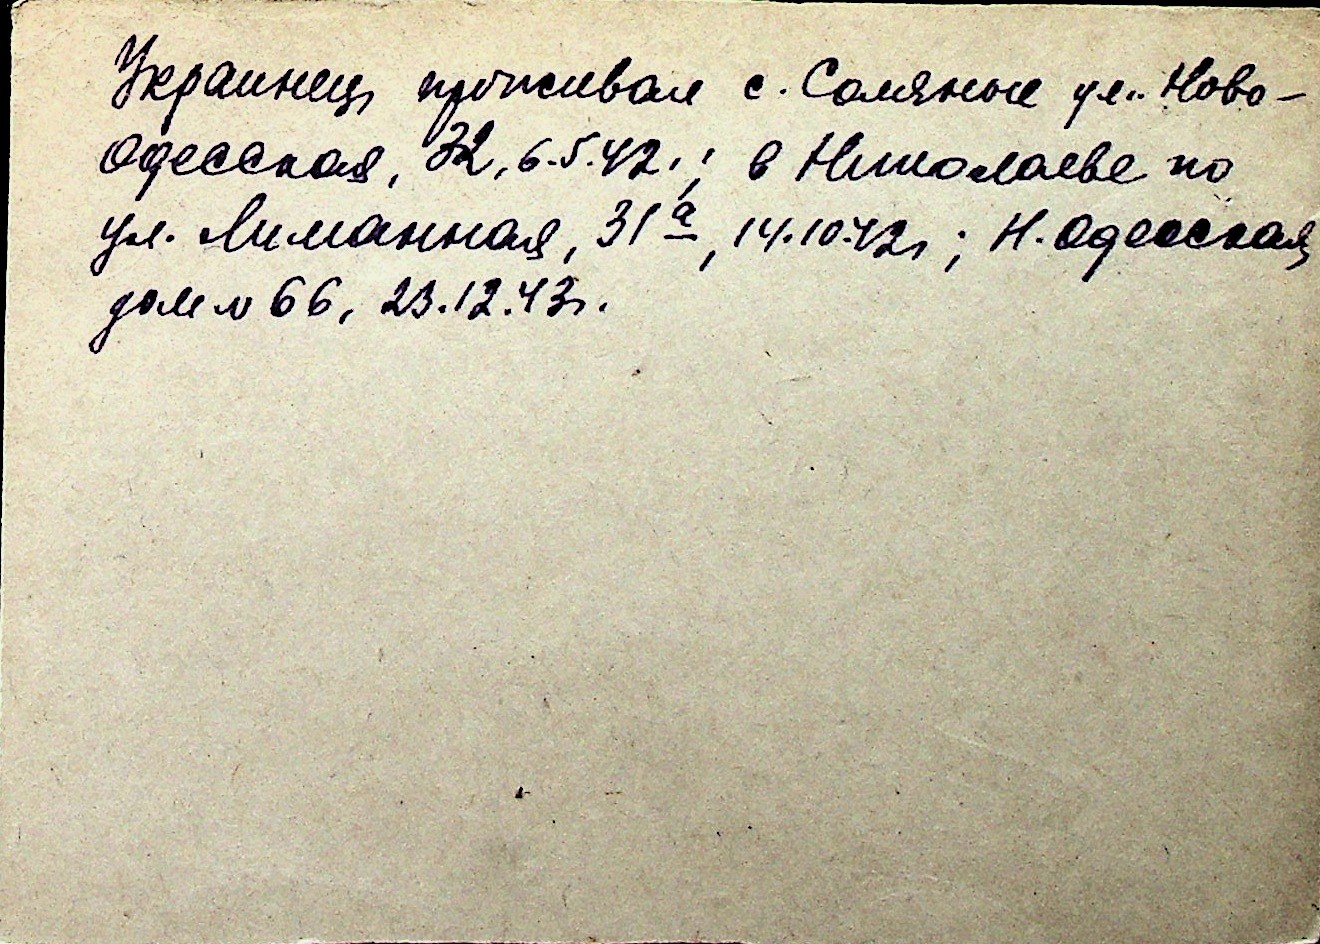 Украинец, проживал с. Соляные ул. Ново-
Одесская, 32, 6.5.42г.; в Николаеве по
ул. Лиманная, 31а, 14.10.42г; Н. Одесская
дом № 66, 23.12.43г.